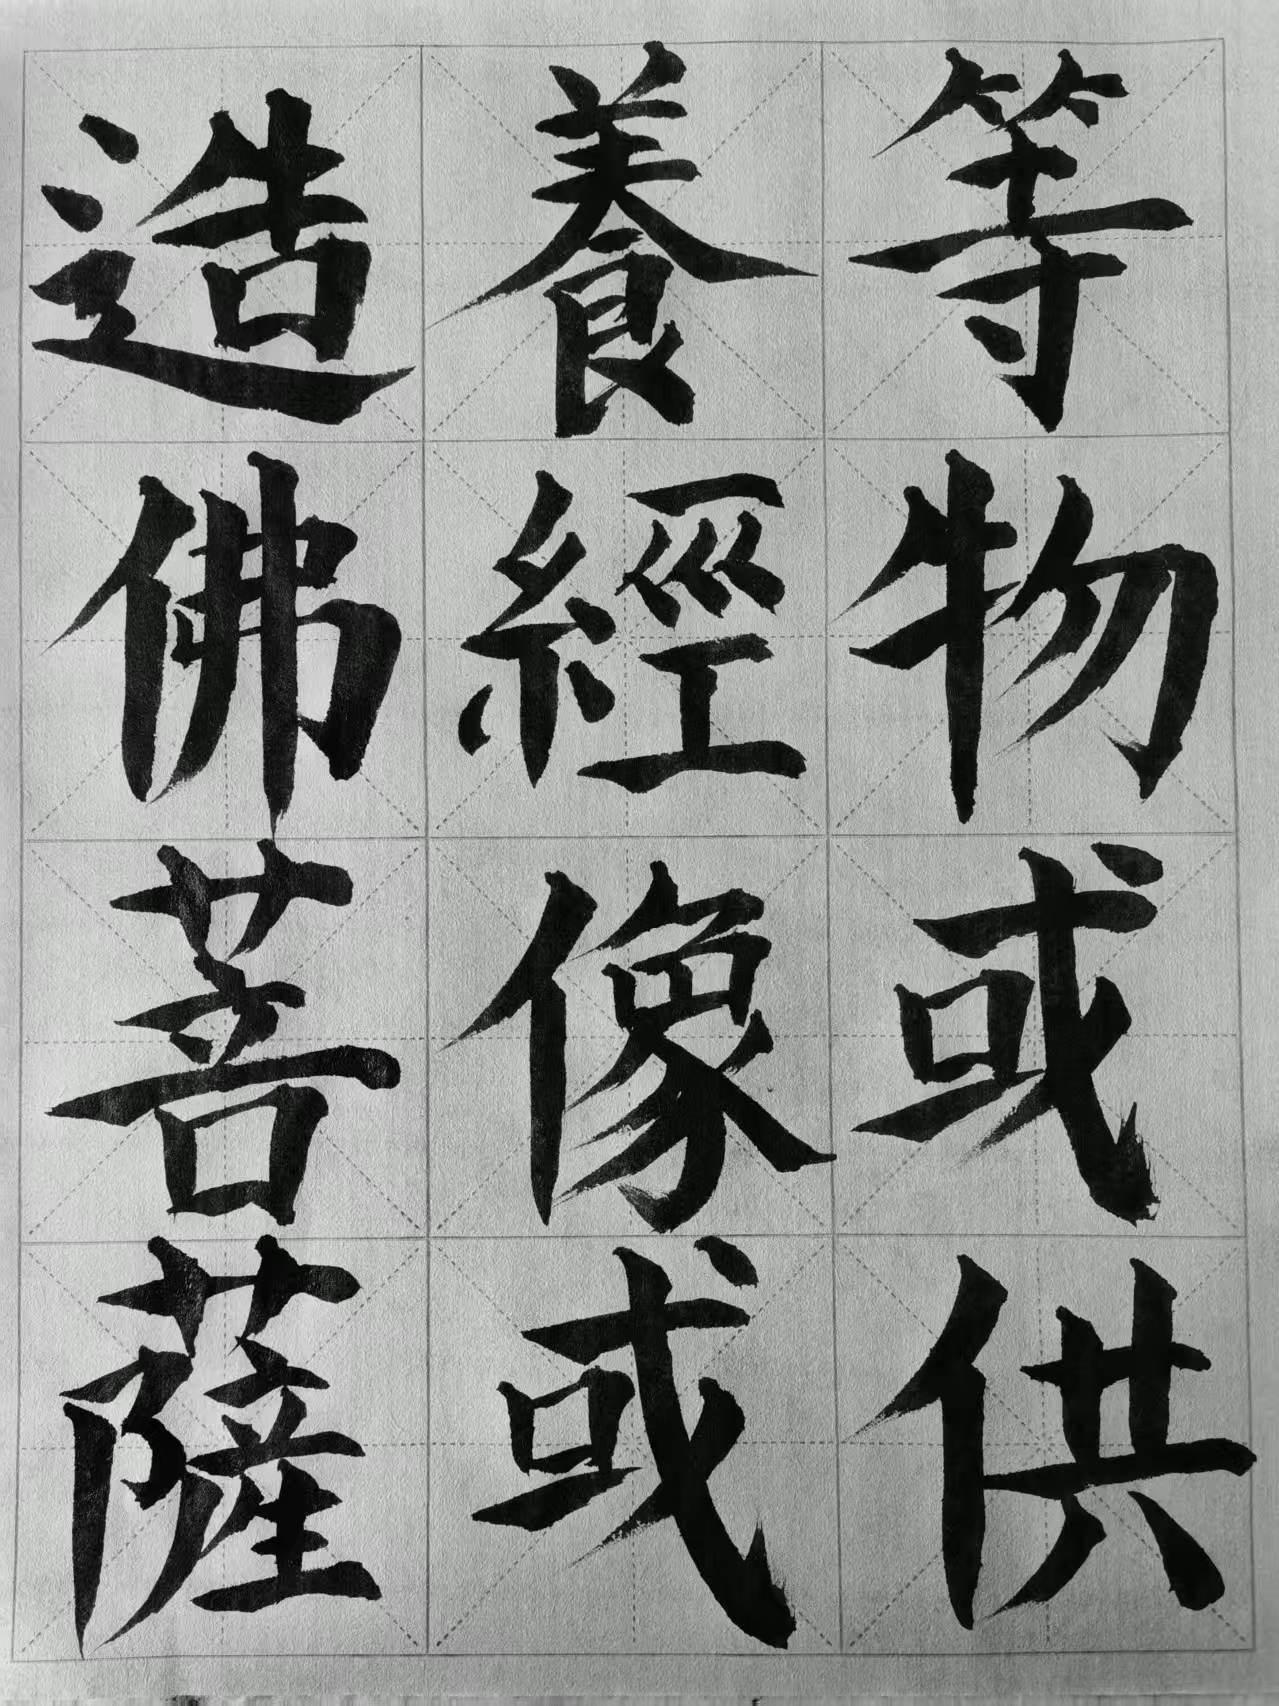 等物或供
養經像或
造佛菩薩